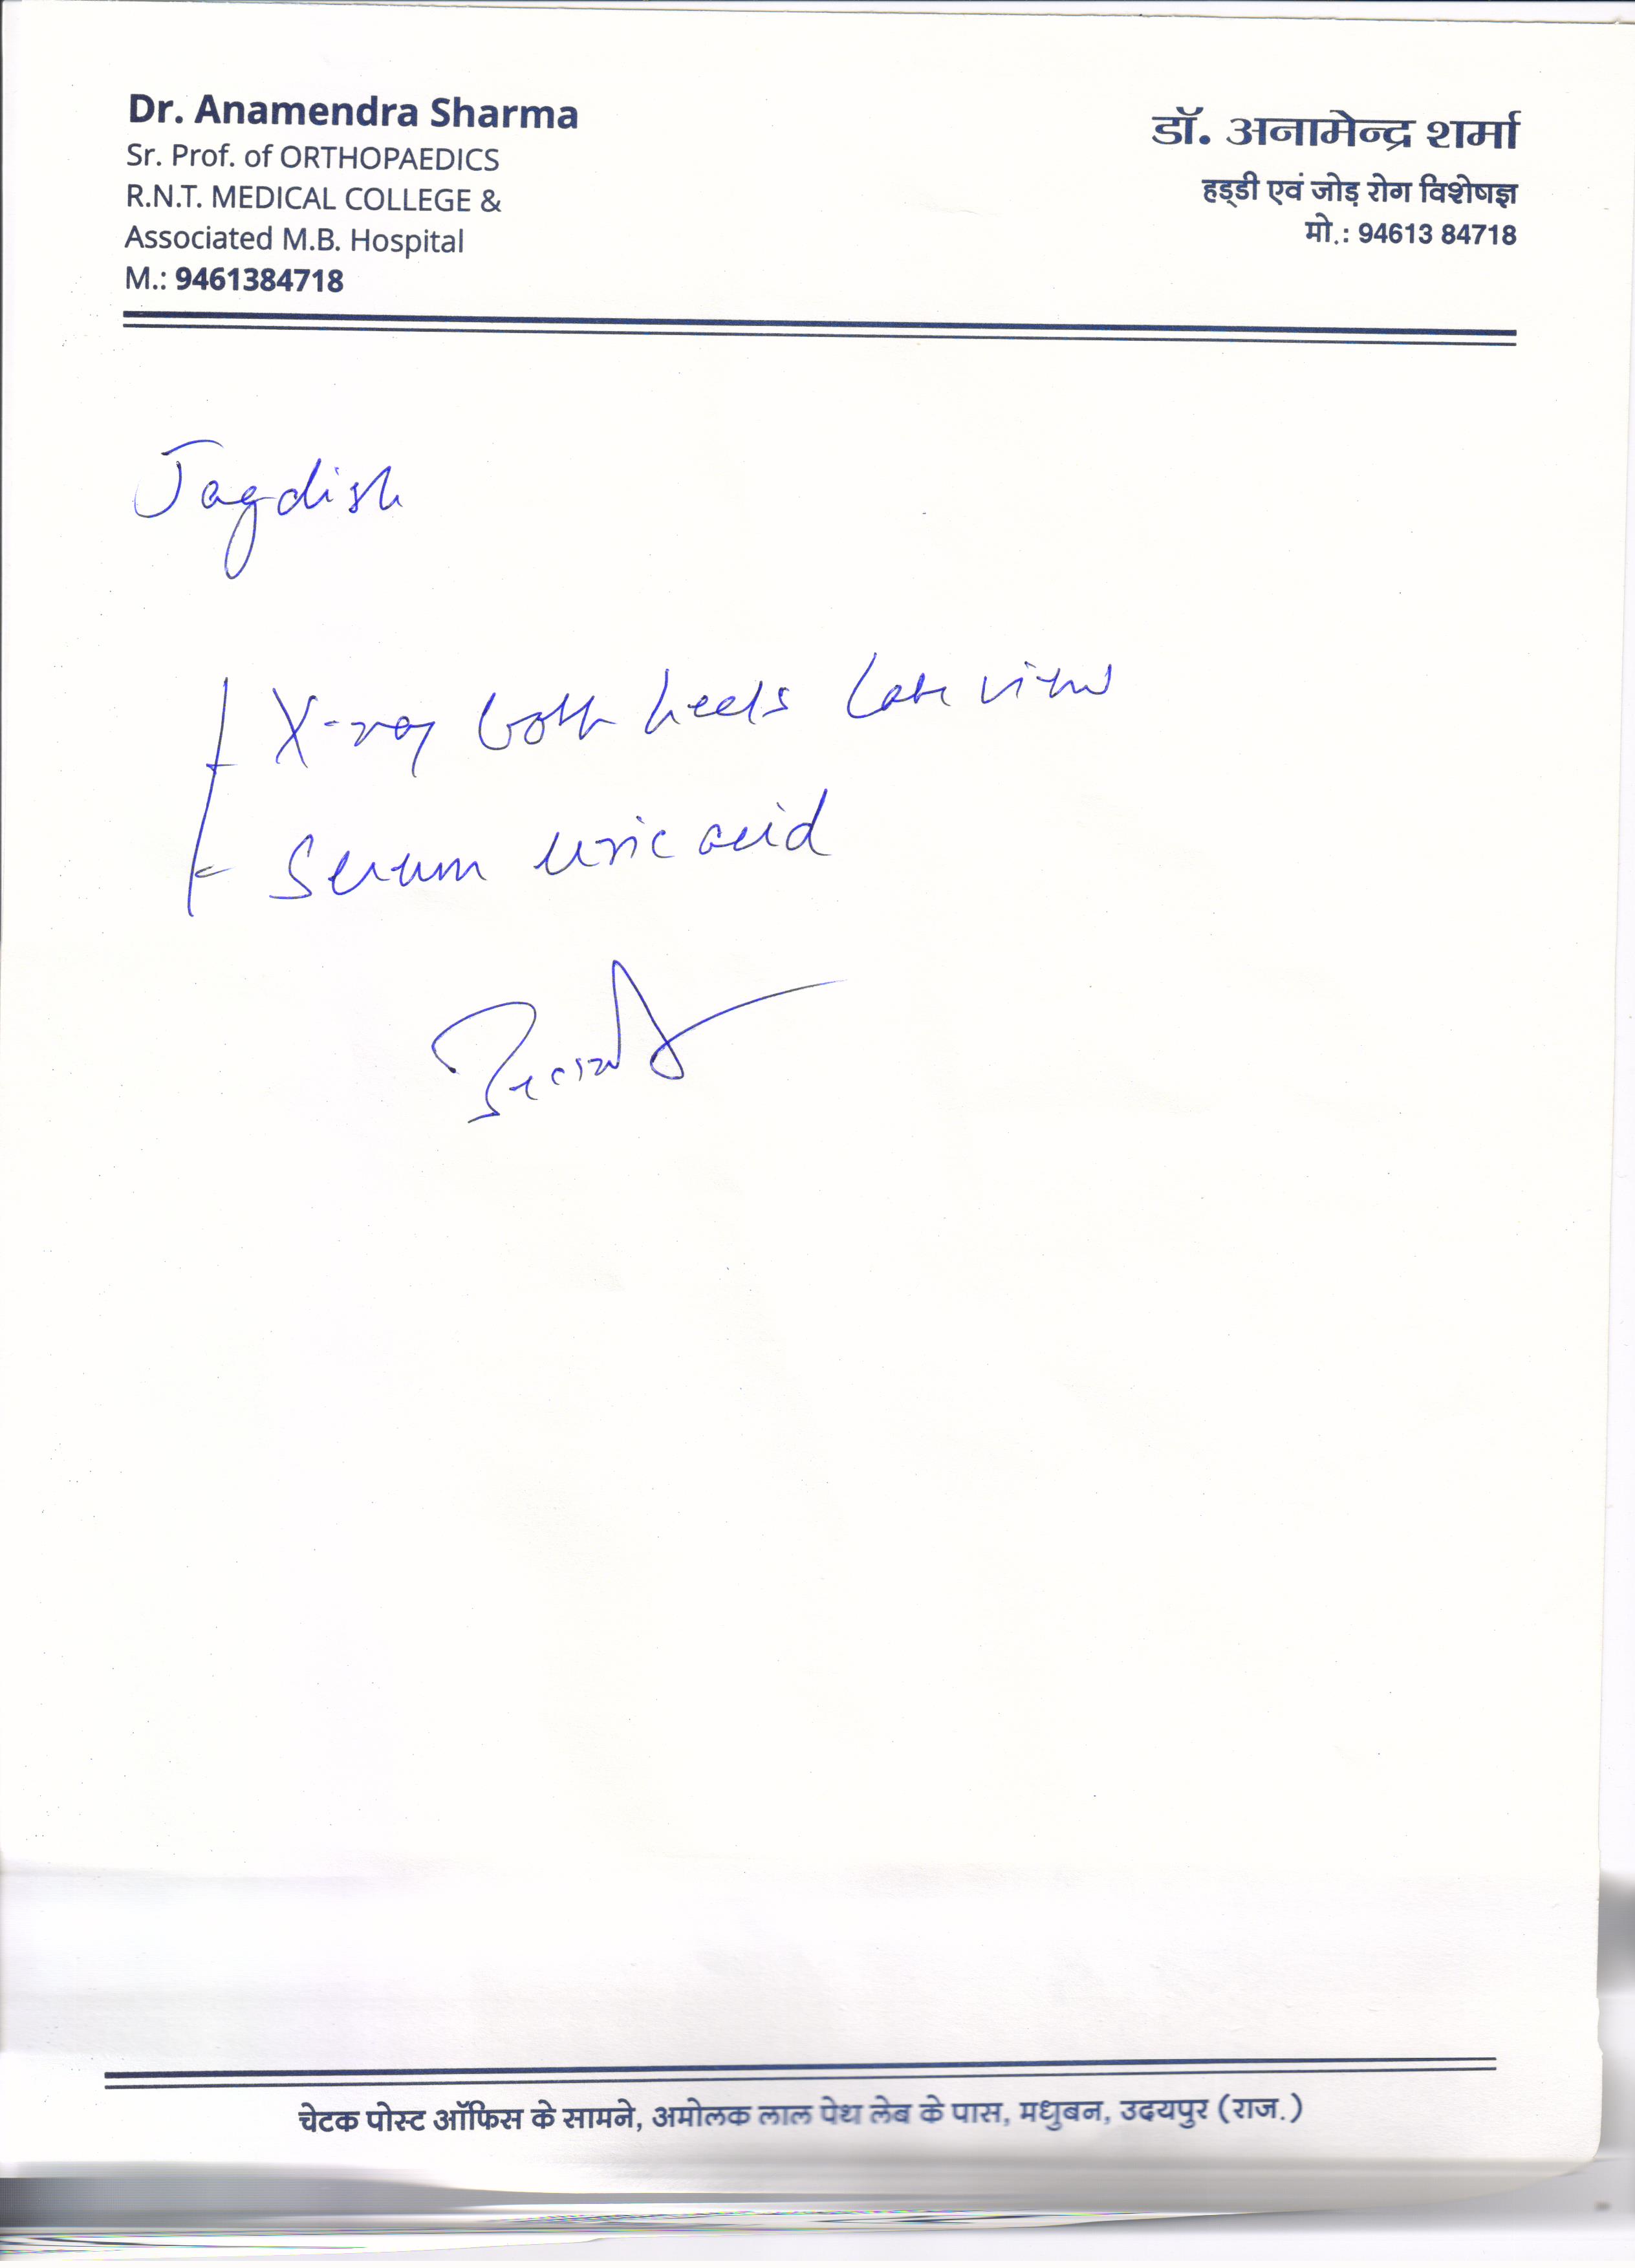 Dr. Anamendra Sharma
Sr. Prof. of ORTHOPAEDICS
R.N.T. MEDICAL COLLEGE &
Associated M.B. Hospital
M.: 9461384718
डॉ. अनामेन्द्र शर्मा
हड्डी एवं जोड़ रोग विशेषज्ञ
मो.: 94613 84718
Jagdish
X-ray both heels view
Serum uric acid
चेटक पोस्ट ऑफिस के सामने, अमोलक लाल पेथ लेब के पास, मधुबन, उदयपुर (राज.)